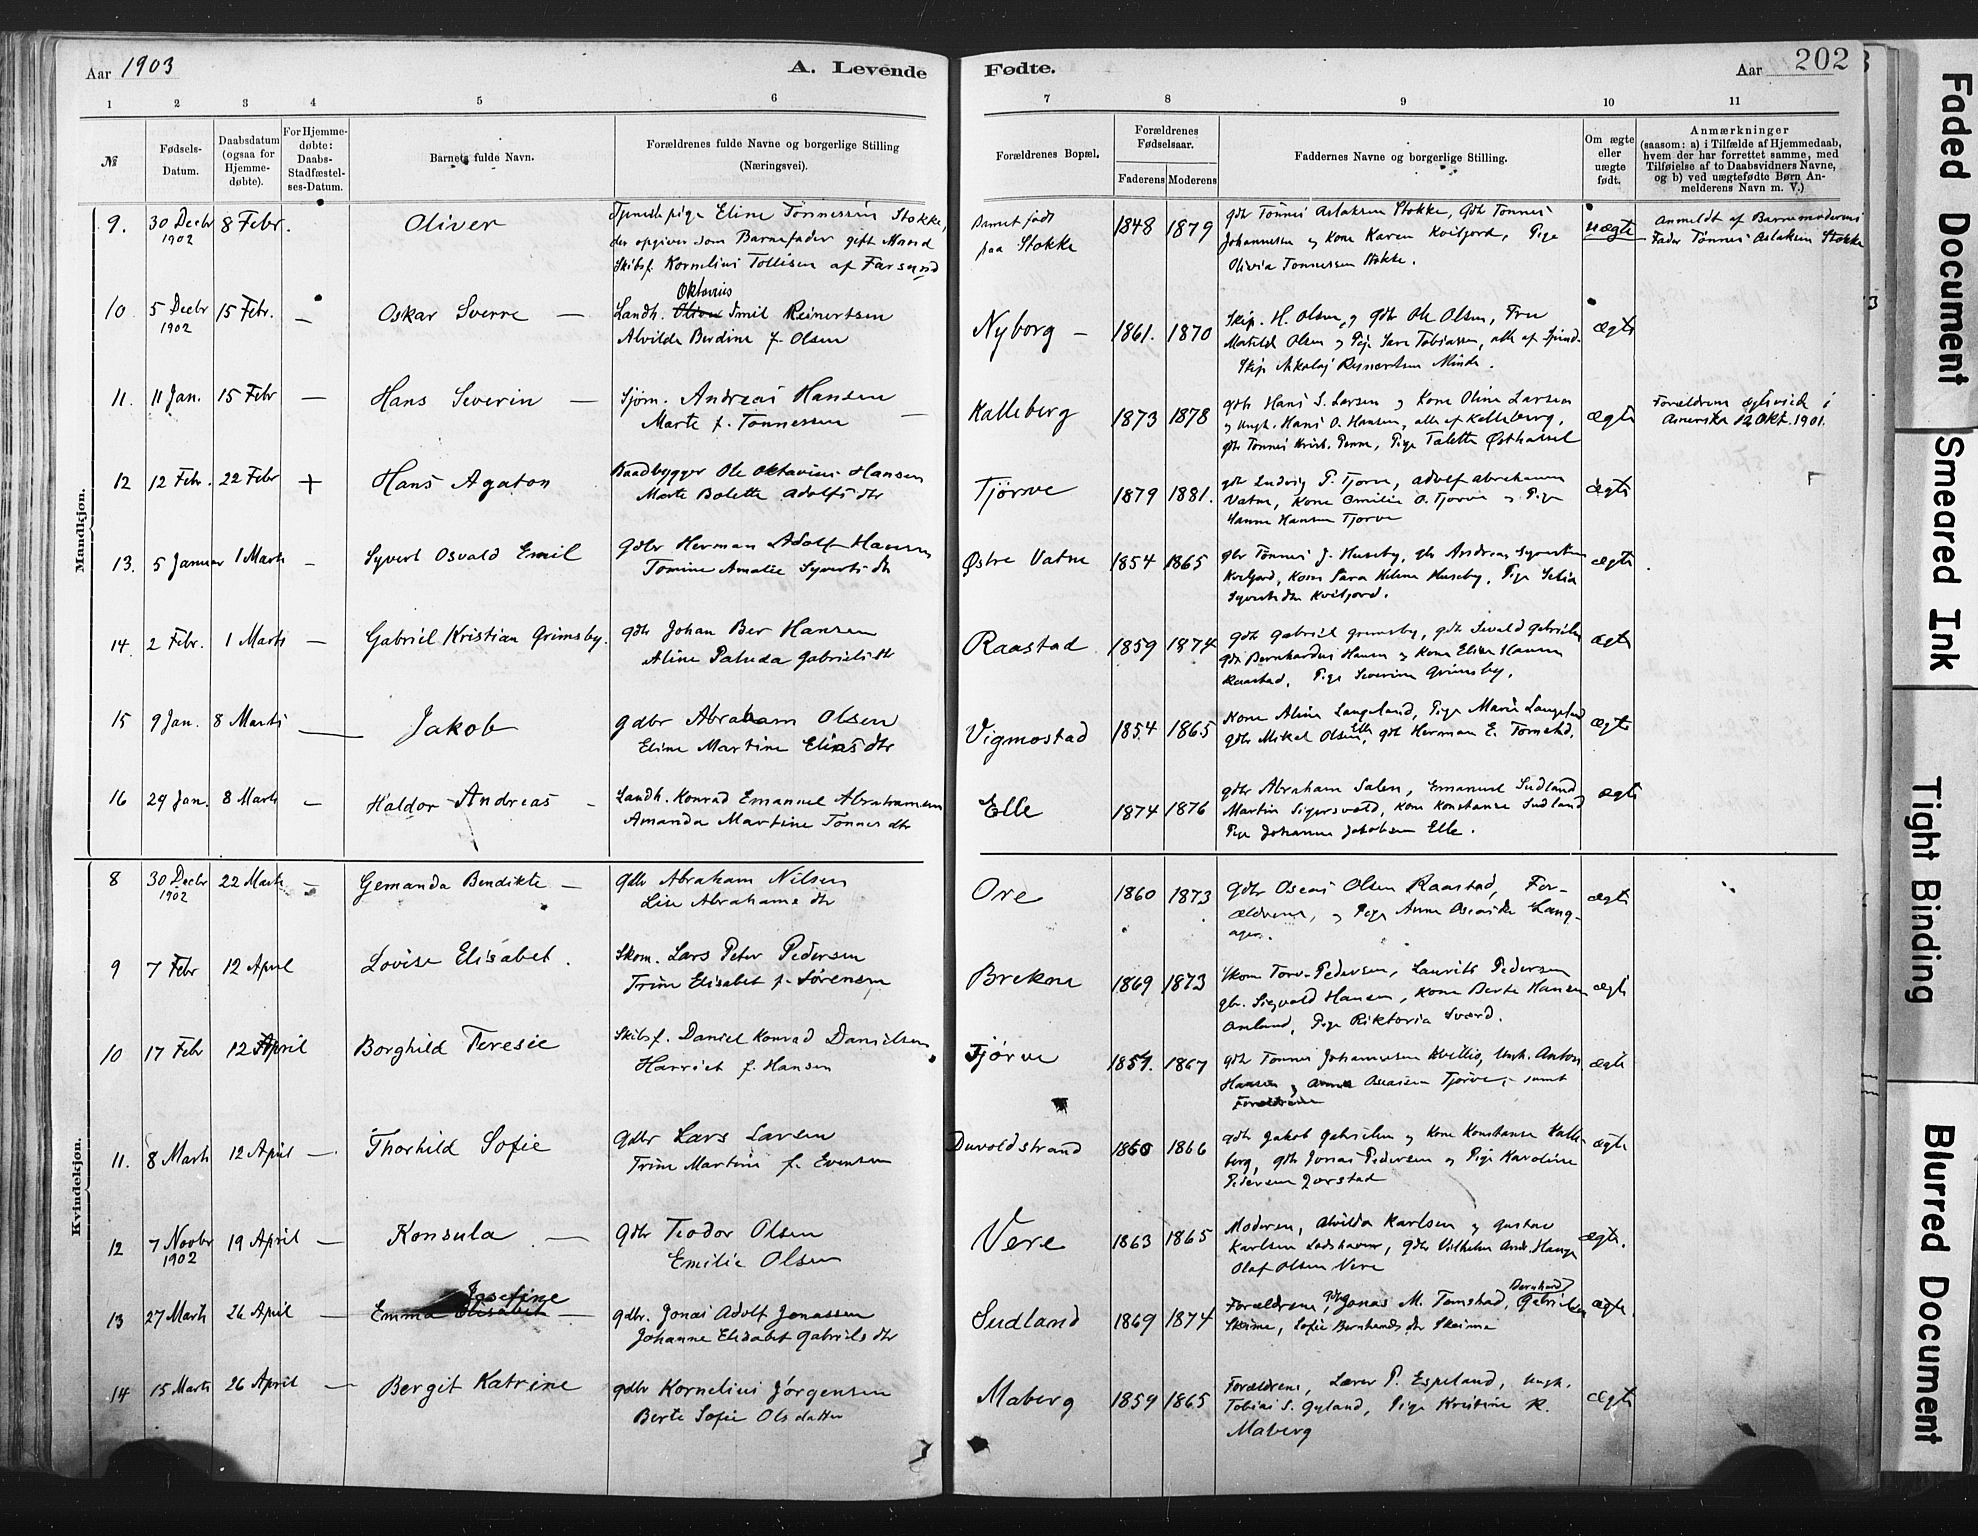 Aar 1903
A. Levende
Fødte.
Aar
202
1 2 3 4 5 6 7 8 9 10 11
№
Fødsels-
Datum.
Daabsdatum
(ogsaa for
Hjemme-
døbte).
For Hjemme-
døbte:
Daabs-
Stadfæstel-
ses-Datum.
Barnets fulde Navn.
Forældrenes fulde Navne og borgerlige Stilling
(Næringsvei).
Forældrenes Bopæl.
Forældrenes
Fødselsaar.
Faderens Moderens
Faddernes Navne og borgerlige Stilling.
Om ægte
eller
uægte
født.
Anmærkninger
(saasom: a) i Tilfælde af Hjemmedaab,
hvem der har forrettet samme, med
Tilføielse af to Daabsvidners Navne,
og b) ved uægtefødte Børn An-
melderens Navn m. V.)
Mandkjøn.
9. 30 Decbr 1902 8 Febr. Oliver
Tjenestepige Eline Tønnessen Stokke,
der opgiver som Barnefader gift Mand
Skibsf. Kornelius Tollisen af Farsund
Barnet født
paa Stokke
1848 1879
gdbr Tønnes Aslaksen Stokke, Gdbr Tønnes
Johannesen og Kone Karen Kviljord, Pige
Olivia Tønnessen Stokke.
uægte
Anmeldt af Barnemoderens
Fader Tønnes Aslaksen Stokke
10 5 Decbr 1902 15 Febr. — Oskar Sverre —
Oktavius
Landh. Oliver Emil Reinertsen
Alvilde Berdine f. Olsen
Nyborg — 1861. 1870
Skip. H. Olsen, og Gdbr Ole Olsen, Fru
Matilde Olsen og Pige Sara Tobiassen, alle af Spind.
Skip. Nikolaj Reinertsen Minde.
ægte
11. 11 Jan. 15 Febr — Hans Severin —
Sjøm. Andreas Hansen
Marte f. Tønnessen —
Kalleberg 1873 1878
gdbr Hans S. Larsen og Kone Oline Larsen
og Ungk. Hans O. Hansen, alle af Kalleberg,
gdbr Tønnes Krist. Penne, Pige Talette Østhassel
ægte
Forældrene ægteviede i
Amerika 12 Okt. 1901.
12 12 Febr. 22 Febr + Hans Agaton
Baadbygger Ole Oktavius Hansen
Marte Bolette Adolfsdtr
Tjørve 1879 1881.
gdbr Ludvig P. Tjørve, Adolf Abrahamsen
Vatne, Kone Emilie O. Tjørve og Pige
Hanne Hansen Tjørve
ægte
13. 5 Januar 1 Marts — Syvert Osvald Emil
Gdbr Herman Adolf Hansen
Tomine Amalie Syvertsdtr
Østre Vatne 1854 1865
gbr Tønnes J. Huseby, gbr Andreas Syvertsen
Kviljord, Kone Sara Helene Huseby, Pige
Syvertsdtr Kviljord.
ægte
14. 2 Febr. 1 Marts — Gabriel Kristian Grimsby.
gdbr Johan Ber Hansen
Aline Paluda Gabrielsdtr
Raastad 1859 1874
gdbr Gabriel Grimsby, gdbr Sevald Gabrielsen
gdbr Bernhardus Hansen og Kone Elise Hansen
Raastad, Pige Severine Grimsby.
ægte
15 9 Jan. 8 Marts — Jakob
gdbr Abraham Olsen
Eline Martine Eliasdtr
Vigmostad 1854 1865
Kone Aline Langeland, Pige Marie Langeland
gdbr Mikal Olsen Elle, gdbr Herman E. Tomstad.
ægte
16 29 Jan. 8 Marts — Haldor Andreas —
Landh. Konrad Emanuel Abrahamsen
Amanda Martine Tønnesdtr
Elle 1874 1876
gdbr Abraham Salen, Emanuel Sudland
Martin Sigersvold, Kone Konstanse Sudland
Pige Johanne Jakobsen Elle.
ægte
Kvindekjøn.
8 30 Decbr 1902 22 Marts — Gemanda Bendikte —
gdbr Abraham Nilsen
Lise Abrahamsdtr
Ore 1860 1873
gdbr Oseas Olsen Raastad, For-
ældrene, og Pige Anne Oseasdtr Lang-
ager.
ægte
9 7 Febr 12 April Lovise Elisabet.
Skom. Lars Peter Pedersen
Trine Elisabet f. Sørensen
Brekne 1869 1873
Skom Torv. Pedersen, Laurits Pedersen
gbr. Sigvald Hansen, Kone Berte Hansen
Østland, Pige Viktoria Sværd.
ægte
10 17 Febr 12 April Borghild Teresie
Skibsf. Daniel Konrad Danielsen
Harriet f. Hansen
Tjørve 1857. 1867
gdbr Tønnes Johannesen Kvillio, Ungk. Anton
Hansen og Anna Oseasen Tjørve, samt
Forældrene
ægte
11. 8 Marts 12 April — Thorhild Sofie
Gdbr Lars Larsen
Trine Martine f. Evensen
Duvoldstrand 1860 1866
gdbr Jakob Gabrielsen og Kone Konstanse Kalle-
berg, gdbr Jonas Pedersen og Pige Karoline
Pedersen Jørstad
ægte
12 7 Novbr 1902 19 April — Konsula —
Gdbr Teodor Olsen
Emilie Olsen
Vere 1863 1865
Moderen, Alvilda Karlsen og Gustav
Karlsen Loshavn, Gdbr Vilhelm Andr. Hauge
Olaf Olsen Vere
ægte.
13 27 Marts 26 April — Emma Elisabet Josefine —
gdbr. Jonas Adolf Jonassen
Johanne Elisabet Gabrielsdtr
Sudland 1869 1874
Forældrene, gdbr Jonas M. Tomstad, Bernhard Gabrielsen
Skeime, Sofie Bernhardsdtr Skeime
ægte
14 15 Marts 26 April — Bergit Katrine
gdbr Kornelius Jørgensen
Berte Sofie Olsdatter
Maberg 1859 1865
Forældrene, Lærer P. Espeland, Ungk.
Tobias S. Gyland, Pige Kristine K.
Maberg
ægte
Faded Document
Smeared Ink
Tight Binding
Blurred Document